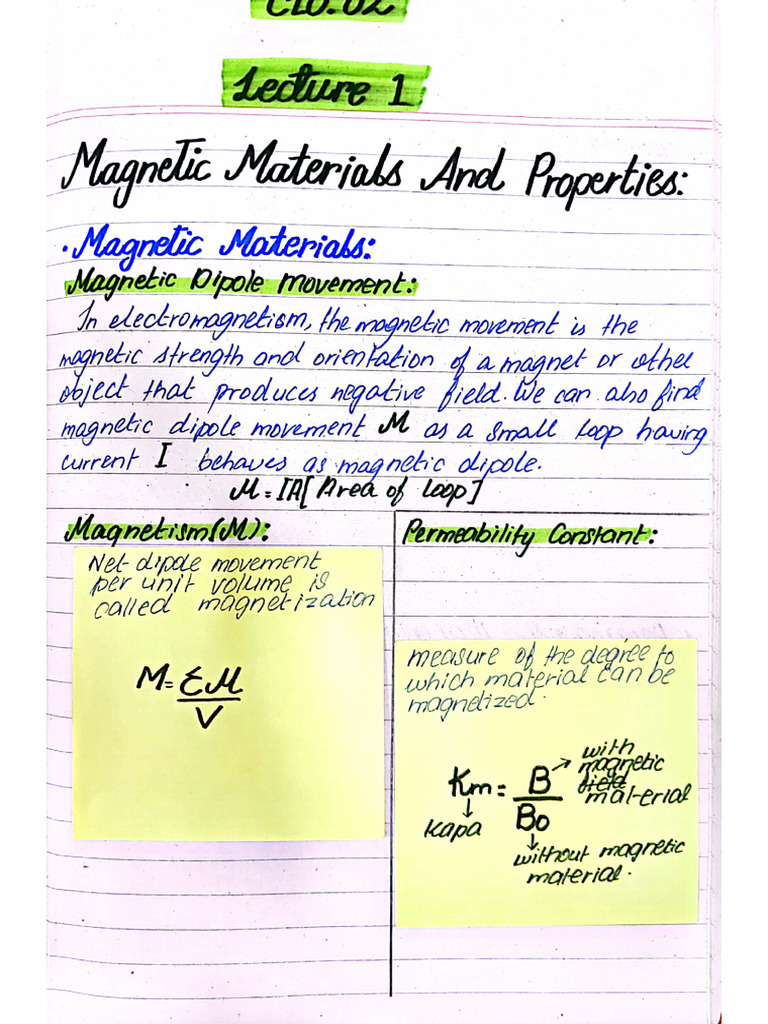 CLO.02
Lecture 1
Magnetic Materials And Properties:
· Magnetic Materials:
Magnetic Dipole movement:
In electromagnetism, the magnetic movement is the
magnetic strength and orientation of a magnet or other
object that produces negative field. We can also find
magnetic dipole movement M as a small loop having
current I behaves as magnetic dipole.
M = IA [Area of loop]
Magnetism(M):
Net dipole movement
per unit volume is
called magnetization
M = ΣM
V
Permeability Constant:
measure of the degree to
which material can be
magnetized.
Km = B
Bo
Kapa
with
magnetic
field
material
without magnetic
material.